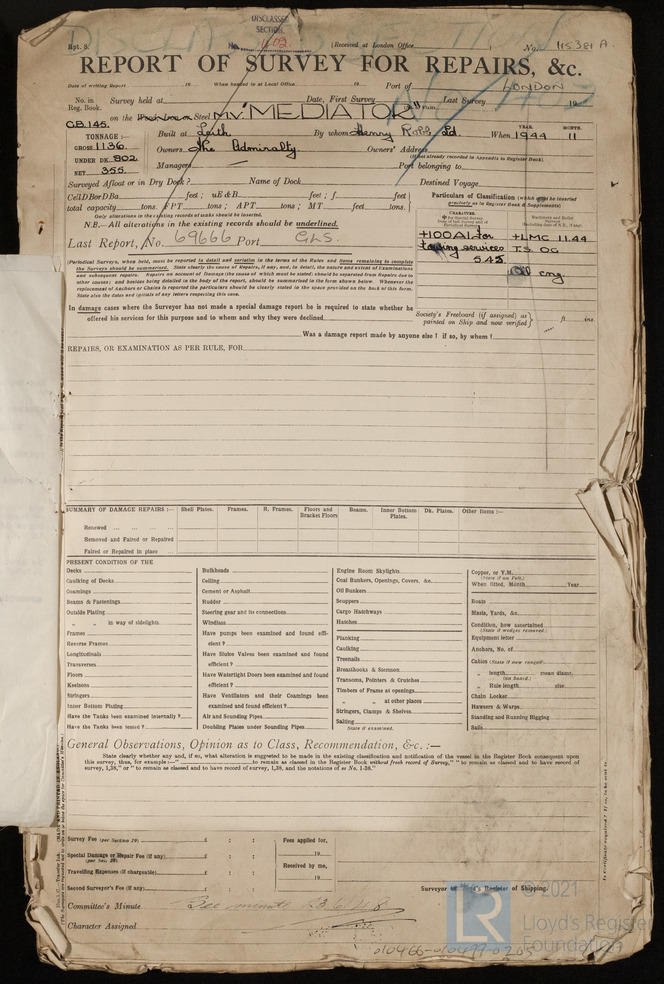 DISCLASSED
SECTION.
No. 1602.
Rpt. 8.
(Received at London Office
No. 115381 A.
REPORT OF SURVEY FOR REPAIRS, &c.
Date of writing Report 19 When handed in at Local Office 19 Port of LONDON
No. in Reg. Book. Survey held at Date, First Survey Last Survey 19
on the Steel MV "MEDIATOR"
G.B. 145.
TONNAGE :— Built at Leith By whom Henry Robb Ld When 1944 YEAR. MONTH. 11
GROSS 1136. Owners The Admiralty. Owners' Address
(If not already recorded in Appendix to Register Book)
UNDER DK. 802
NET 355. Managers Port belonging to
Surveyed Afloat or in Dry Dock? Name of Dock Destined Voyage
Cell D B or D B a feet; uE & B feet; f feet
total capacity tons. FPT tons; APT tons; MT feet tons.
Only alterations in the existing records of tanks should be inserted.
N.B.—All alterations in the existing records should be underlined.
Last Report, No. 69666 Port GLS.
Particulars of Classification (which must be inserted
precisely as in Register Book & Supplements)
+100A1 for +LMC 11.44
towing services T.S. OG
5.45
Oil eng.
(Periodical Surveys, when held, must be reported in detail and seriatim in the terms of the Rules and items remaining to complete
the Surveys should be summarised. State clearly the cause of Repairs, if any, and, in detail, the nature and extent of Examinations
and subsequent repairs. Repairs on account of Damage (the cause of which must be stated) should be separated from Repairs due to
other causes; and besides being detailed in the body of the report, should be summarised in the form shown below. Whenever the
replacement of Anchors or Chains is reported the particulars should be clearly stated in the space provided on the back of this form.
State also the dates and initials of any letters respecting this case.
In damage cases where the Surveyor has not made a special damage report he is required to state whether he
offered his services for this purpose and to whom and why they were declined
Society's Freeboard (if assigned) as
painted on Ship and now verified } ft ins.
Was a damage report made by anyone else? if so, by whom?
REPAIRS, OR EXAMINATION AS PER RULE, FOR
SUMMARY OF DAMAGE REPAIRS :— Shell Plates. Frames. R. Frames. Floors and Bracket Floors Beams. Inner Bottom Plates. Dk. Plates. Other Items :—
Renewed ... ... ... ...
Removed and Faired or Repaired
Faired or Repaired in place ...
PRESENT CONDITION OF THE
Decks
Caulking of Decks
Coamings
Beams & Fastenings
Outside Plating
" " in way of sidelights
Frames
Reverse Frames
Longitudinals
Transverses
Floors
Keelsons
Stringers
Inner Bottom Plating
Have the Tanks been examined internally?
Have the Tanks been tested?
Bulkheads
Ceiling
Cement or Asphalt
Rudder
Steering gear and its connections
Windlass
Have pumps been examined and found effi-
cient?
Have Sluice Valves been examined and found
efficient?
Have Watertight Doors been examined and found
efficient?
Have Ventilators and their Coamings been
examined and found efficient?
Air and Sounding Pipes
Doubling Plates under Sounding Pipes
Engine Room Skylights
Coal Bunkers, Openings, Covers, &c.
Oil Bunkers
Scuppers
Cargo Hatchways
Hatches
Planking
Caulking
Treenails
Breasthooks & Stemson
Transoms, Pointers & Crutches
Timbers of Frame at openings
" " at other places
Stringers, Clamps & Shelves
Salting
(State if examined.
Copper, or Y.M.
(State if on Felt.)
When fitted, Month Year
Boats
Masts, Yards, &c.
Condition, how ascertained
(State if wedges removed)
Equipment letter
Anchors, No. of
Cables (State if now ranged)
" length mean diamr.
(on board)
" Rule length size
Chain Locker
Hawsers & Warps
Standing and Running Rigging
Sails
General Observations, Opinion as to Class, Recommendation, &c. :—
State clearly whether any and, if so, what alteration is suggested to be made in the existing classification and notification of the vessel in the Register Book consequent upon
this survey, thus, for example :—" to remain as classed in the Register Book without fresh record of Survey," "to remain as classed and to have record of
survey, 1,38," or "to remain as classed and to have record of survey, 1,38, and the notations of ss No. 1-38."
Survey Fee (per Section 29) £ : : Fees applied for,
Special Damage or Repair Fee (if any) £ : : 19
(per Sec. 29)
Travelling Expenses (if chargeable) £ : : Received by me,
Second Surveyor's Fee (if any) £ : : 19
Surveyor to Lloyd's Register of Shipping.
Committee's Minute See minute
Character Assigned
© 2021
LR
Lloyd's Register
Foundation
010466-010499-0205